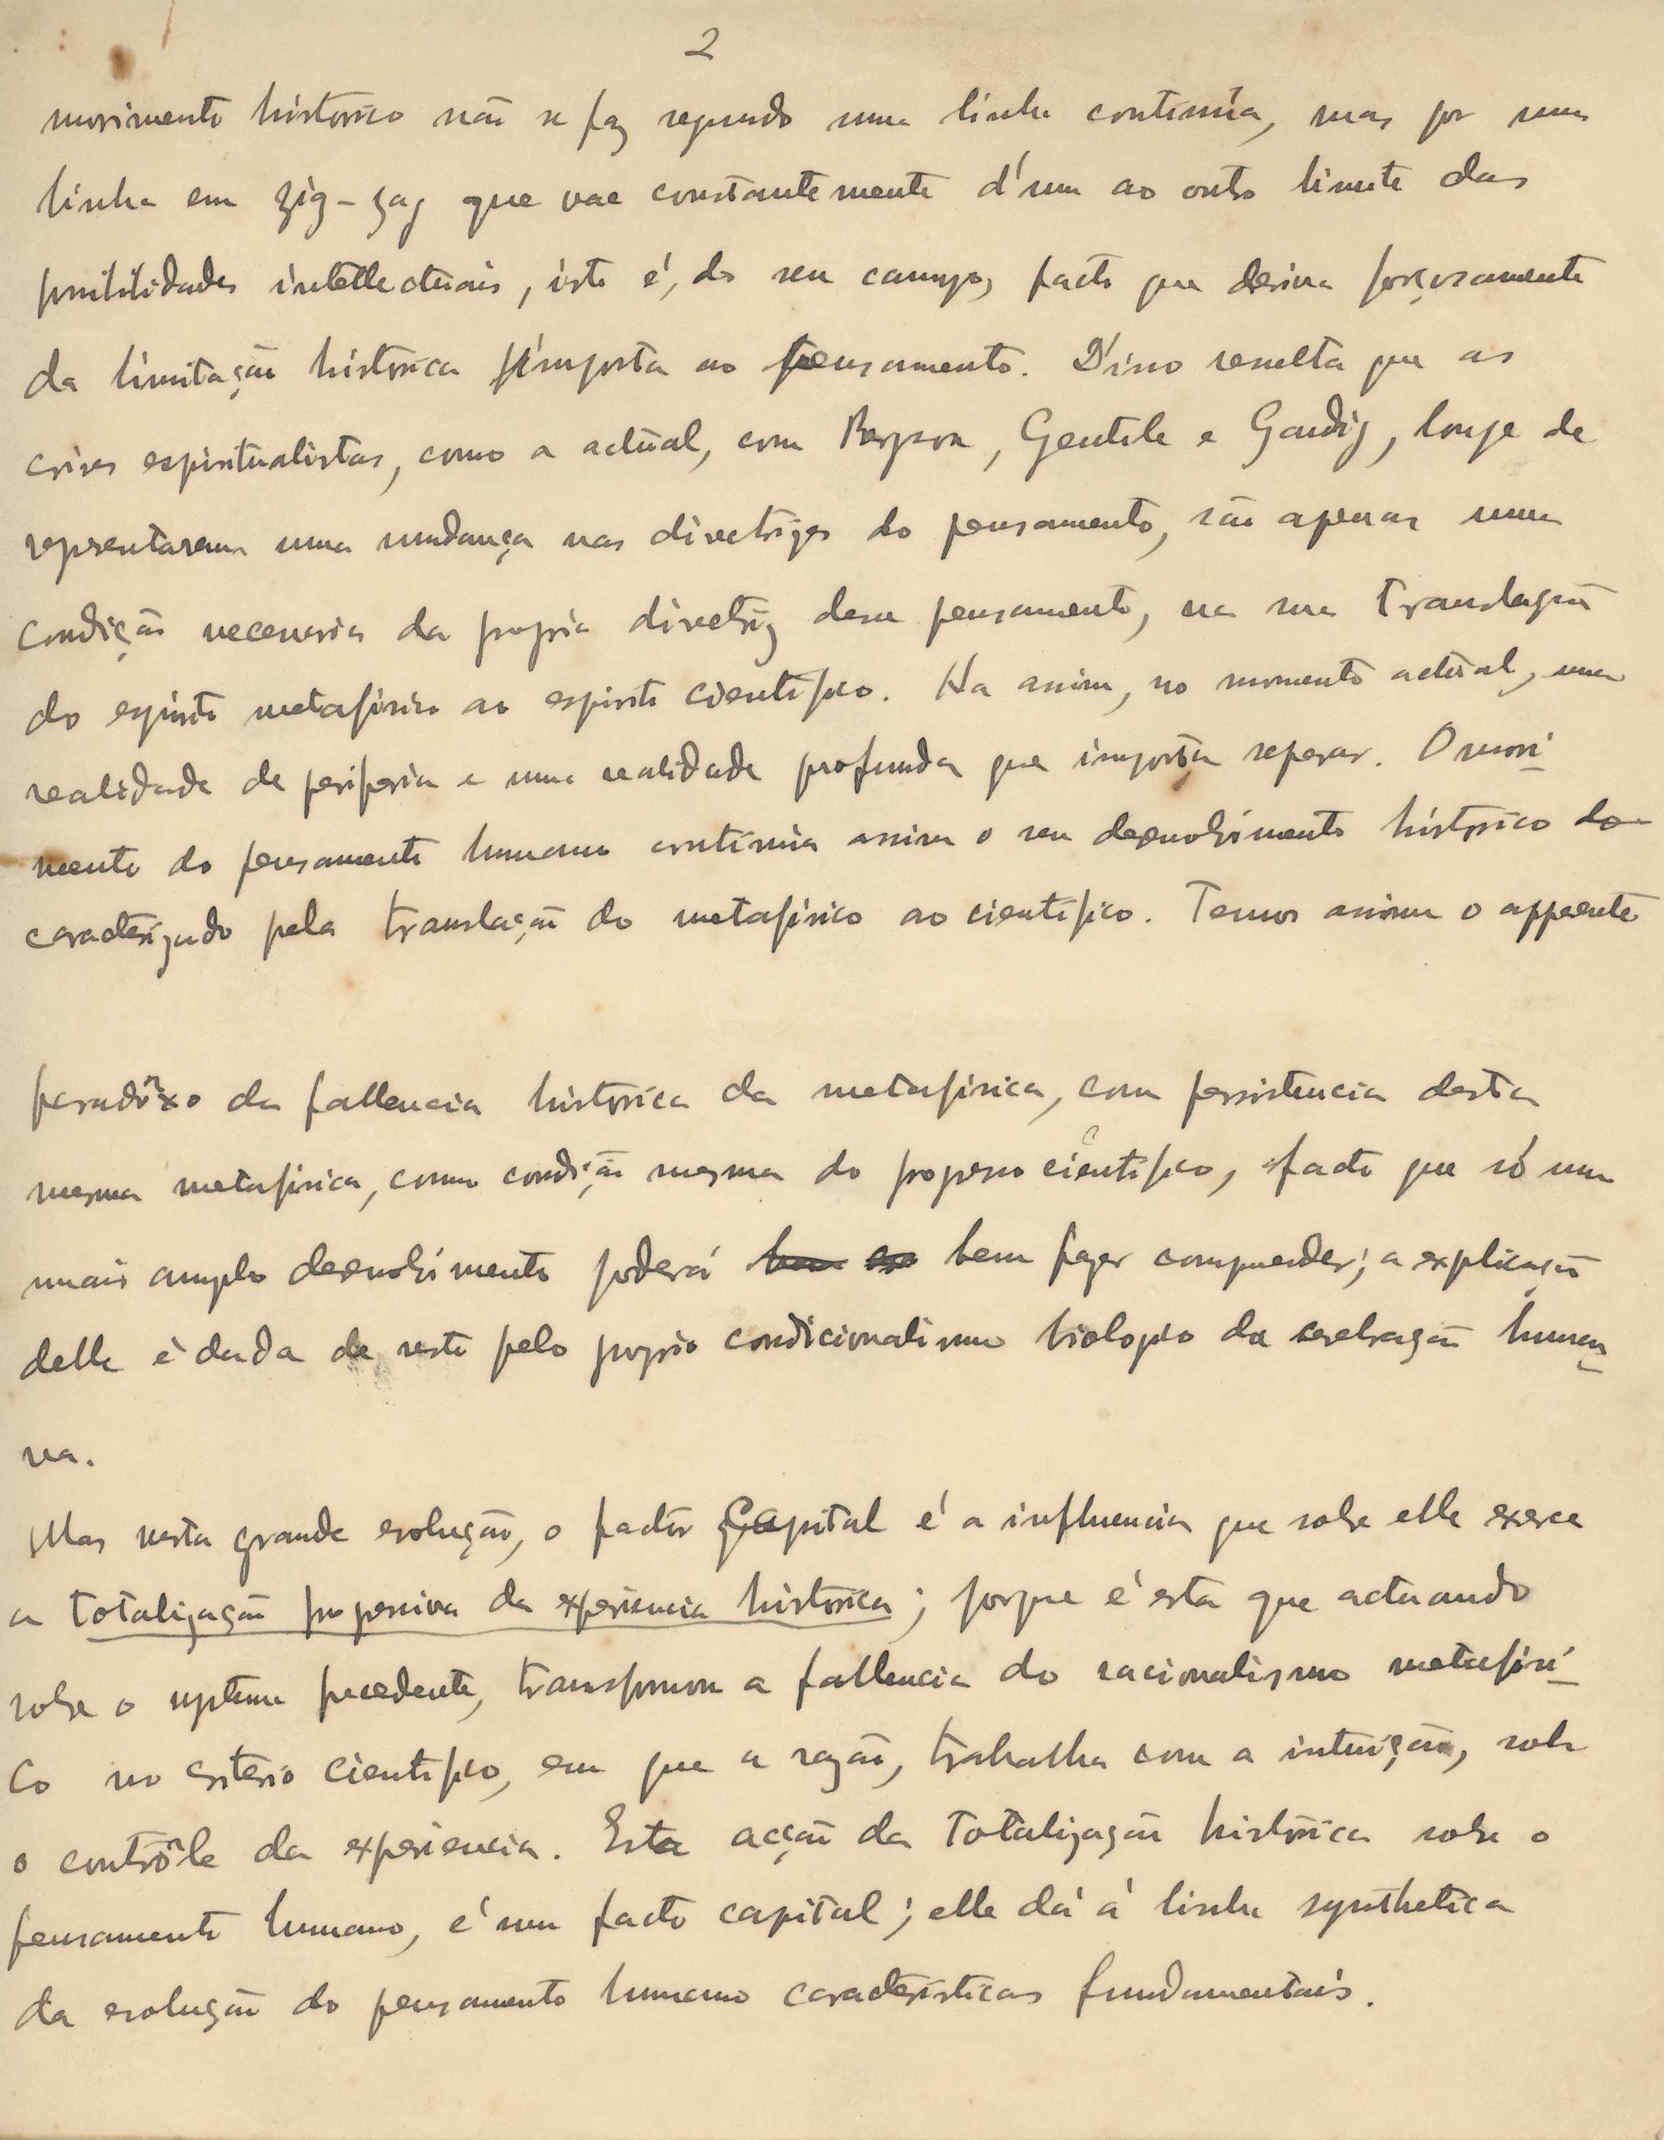 2
movimento histórico não se faz segundo uma linha contínua, mas por uma
linha em zig-zag que vae constantemente d'um ao outro limite das
possibilidades intellectuais, isto é, do seu campo, facto que deriva forçosamente
da limitação histórica imposta ao pensamento. D'isso resulta que as
crises espiritualistas, como a actual, com Bergson, Gentile e Gaudij, longe de
representarem uma mudança nas directrizes do pensamento, são apenas uma
condição necessaria da propria directriz desse pensamento, na sua translação
do espirito metafísico ao espirito cientifico. Ha assim, no momento actual, uma
realidade de periferia e uma realidade profunda que importa separar. O movi-
mento do pensamento humano contínúa assim o seu desenvolvimento histórico
caracterizado pela translação do metafísico ao cientifico. Temos assim o apparente
paradôxo da fallencia histórica da metafísica, com persistencia desta
mesma metafísica, como condição mesma do progresso cientifico, facto que só um
mais amplo desenvolvimento poderá bem fazer comprender; a explicação
delle é dada de resto pelo proprio condicionalismo biologico da cerebração huma-
na.
Mas nesta grande evolução, o factor Capital é a influencia que sobre elle exerce
a totalização progressiva da experiencia histórica; porque é esta que actuando
sobre o systema precedente, transformou a fallencia do racionalismo metafísi-
co no criterio cientifico, em que a razão, trabalha com a intuição, sob
o contrôle da experiencia. Esta acção da totalização histórica sobre o
pensamento humano, é um facto capital; elle dá á linha synthetica
da evolução do pensamento humano caracteristicas fundamentais.